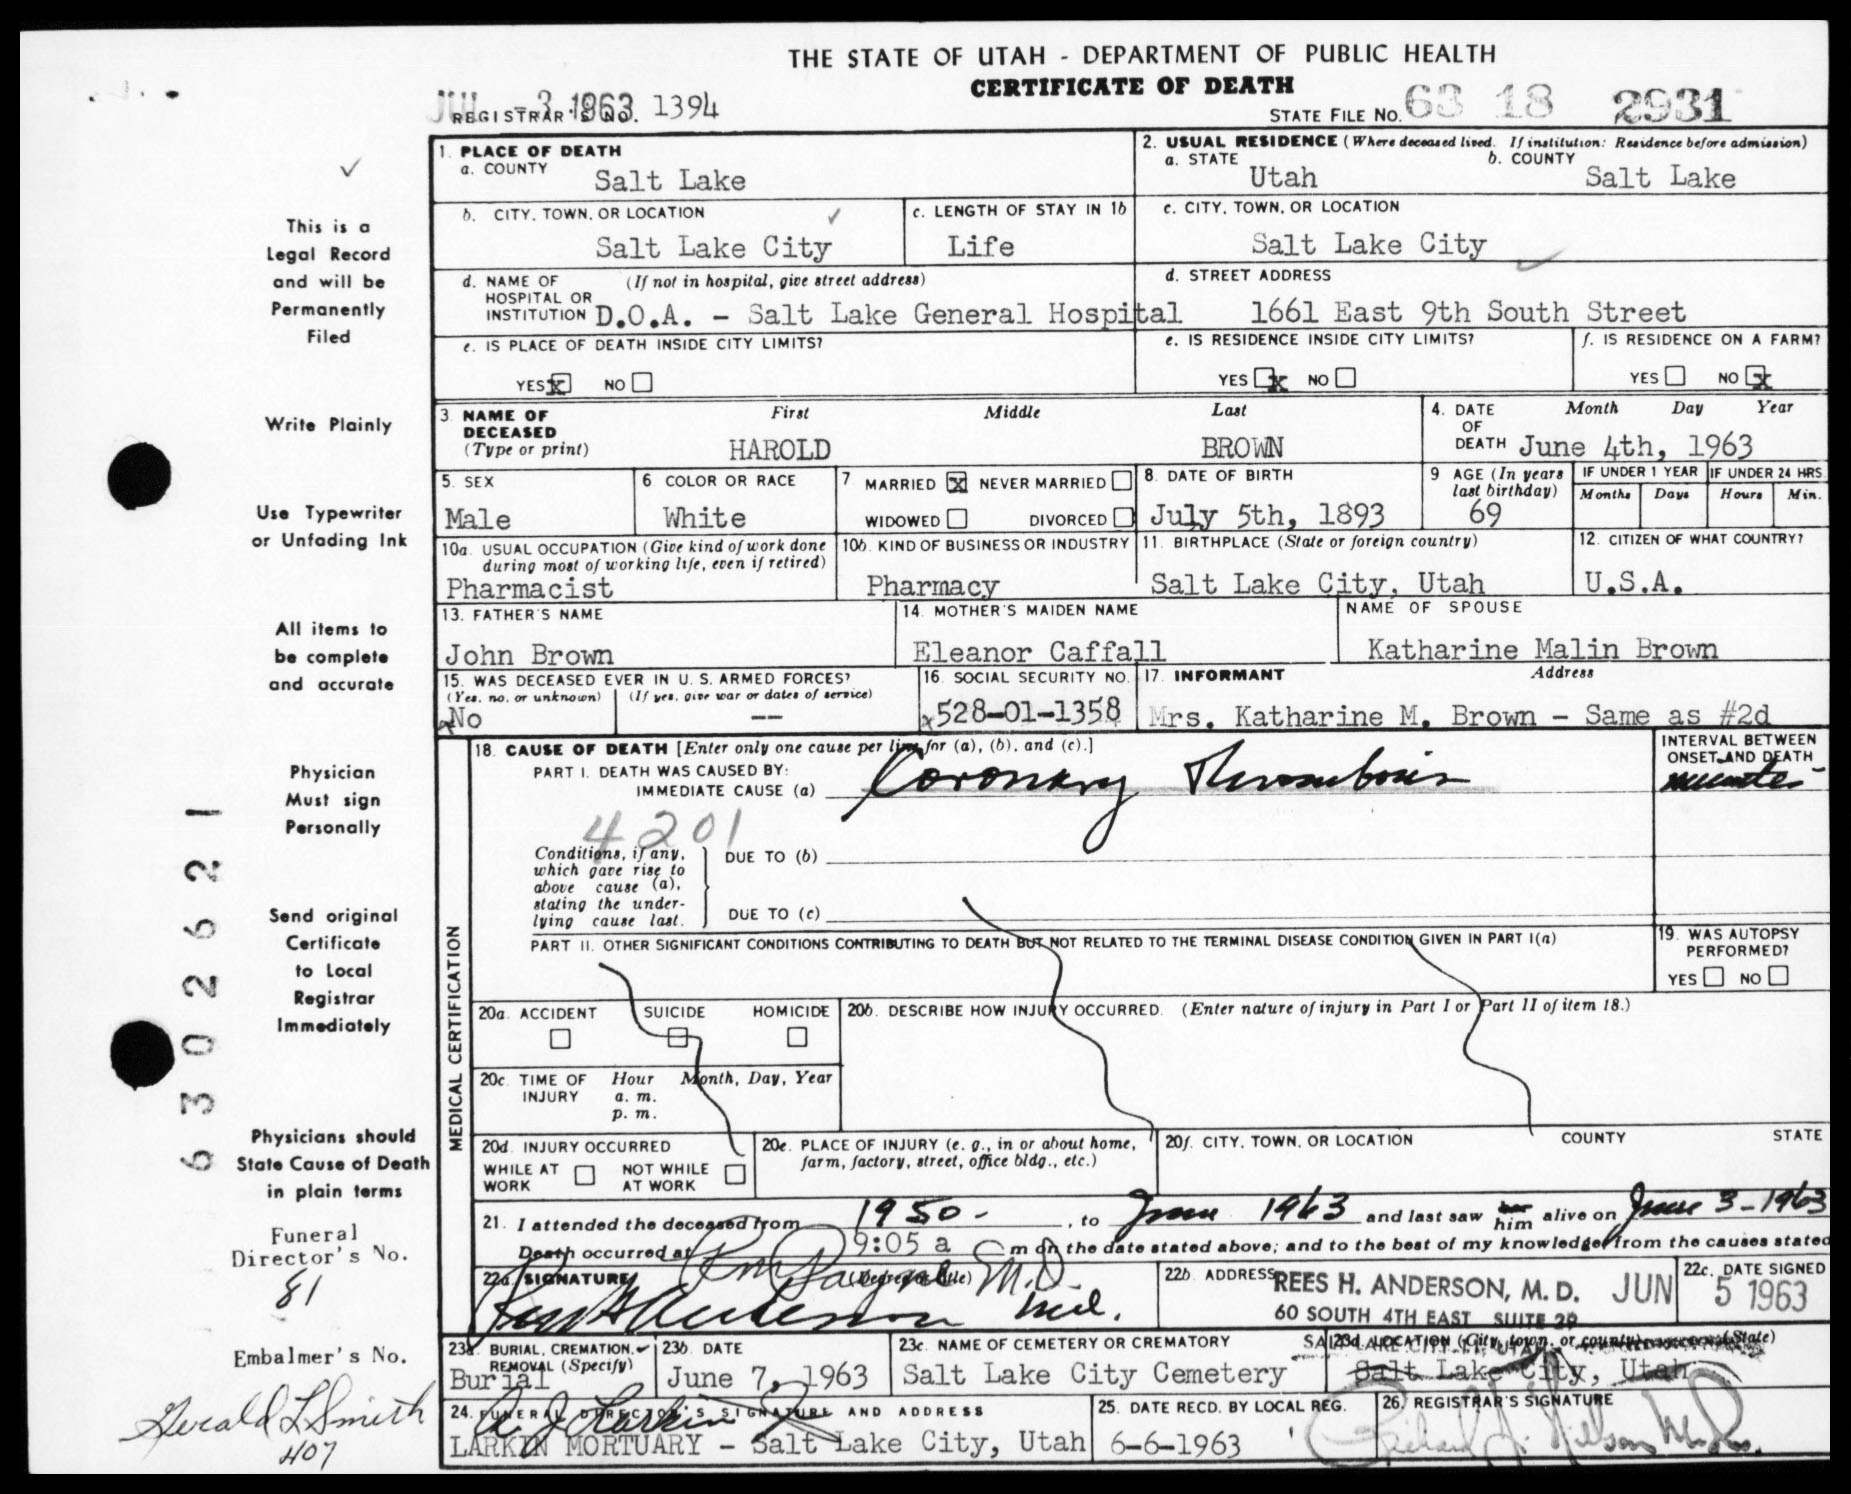 THE STATE OF UTAH - DEPARTMENT OF PUBLIC HEALTH
CERTIFICATE OF DEATH
JUL -3 1963
REGISTRAR'S NO. 1394
STATE FILE NO. 63 18 2931
1. PLACE OF DEATH
a. COUNTY
Salt Lake
2. USUAL RESIDENCE (Where deceased lived. If institution: Residence before admission)
a. STATE b. COUNTY
Utah Salt Lake
b. CITY, TOWN, OR LOCATION
Salt Lake City
c. LENGTH OF STAY IN 1b
Life
c. CITY, TOWN, OR LOCATION
Salt Lake City
d. NAME OF (If not in hospital, give street address)
HOSPITAL OR
INSTITUTION D.O.A. - Salt Lake General Hospital
d. STREET ADDRESS
1661 East 9th South Street
e. IS PLACE OF DEATH INSIDE CITY LIMITS?
YES x NO
e. IS RESIDENCE INSIDE CITY LIMITS?
YES x NO
f. IS RESIDENCE ON A FARM?
YES NO x
3. NAME OF DECEASED (Type or print)
First Middle Last
HAROLD BROWN
4. DATE OF DEATH Month Day Year
June 4th, 1963
5. SEX
Male
6. COLOR OR RACE
White
7. MARRIED x NEVER MARRIED
WIDOWED DIVORCED
8. DATE OF BIRTH
July 5th, 1893
9 AGE (In years last birthday)
69
IF UNDER 1 YEAR IF UNDER 24 HRS.
Months Days Hours Min.
10a. USUAL OCCUPATION (Give kind of work done
during most of working life, even if retired)
Pharmacist
10b. KIND OF BUSINESS OR INDUSTRY
Pharmacy
11. BIRTHPLACE (State or foreign country)
Salt Lake City, Utah
12. CITIZEN OF WHAT COUNTRY?
U.S.A.
13. FATHER'S NAME
John Brown
14. MOTHER'S MAIDEN NAME
Eleanor Caffall
NAME OF SPOUSE
Katharine Malin Brown
15. WAS DECEASED EVER IN U. S. ARMED FORCES?
(Yes, no, or unknown) (If yes, give war or dates of service)
No --
16. SOCIAL SECURITY NO.
528-01-1358
17. INFORMANT Address
Mrs. Katharine M. Brown - Same as #2d
MEDICAL CERTIFICATION
18. CAUSE OF DEATH [Enter only one cause per line for (a), (b), and (c).]
PART I. DEATH WAS CAUSED BY:
IMMEDIATE CAUSE (a) Coronary Thrombosis
INTERVAL BETWEEN
ONSET AND DEATH
minutes
4201
Conditions, if any,
which gave rise to
above cause (a),
stating the under-
lying cause last.
DUE TO (b)
DUE TO (c)
PART II. OTHER SIGNIFICANT CONDITIONS CONTRIBUTING TO DEATH BUT NOT RELATED TO THE TERMINAL DISEASE CONDITION GIVEN IN PART I(a)
19. WAS AUTOPSY
PERFORMED?
YES NO
20a. ACCIDENT SUICIDE HOMICIDE
20b. DESCRIBE HOW INJURY OCCURRED. (Enter nature of injury in Part I or Part II of item 18.)
20c. TIME OF INJURY Hour Month, Day, Year
a. m.
p. m.
20d. INJURY OCCURRED
WHILE AT WORK NOT WHILE AT WORK
20e. PLACE OF INJURY (e. g., in or about home,
farm, factory, street, office bldg., etc.)
20f. CITY, TOWN, OR LOCATION COUNTY STATE
21. I attended the deceased from 1950 - , to June 1963 and last saw him alive on June 3 - 1963
Death occurred at 9:05 a m on the date stated above; and to the best of my knowledge, from the causes stated
22a. SIGNATURE (Degree or title) M.D.
Rees H Anderson M.D.
22b. ADDRESS
REES H. ANDERSON, M. D.
60 SOUTH 4TH EAST SUITE 20
SALT LAKE CITY 11, UTAH
22c. DATE SIGNED
JUN 5 1963
23a. BURIAL, CREMATION, REMOVAL (Specify)
Burial
23b. DATE
June 7, 1963
23c. NAME OF CEMETERY OR CREMATORY
Salt Lake City Cemetery
23d. LOCATION (City, town, or county) (State)
Salt Lake City, Utah
24. FUNERAL DIRECTOR'S SIGNATURE AND ADDRESS
A J Larkin Jr
LARKIN MORTUARY - Salt Lake City, Utah
25. DATE RECD. BY LOCAL REG.
6-6-1963
26. REGISTRAR'S SIGNATURE
This is a
Legal Record
and will be
Permanently
Filed
Write Plainly
Use Typewriter
or Unfading Ink
All items to
be complete
and accurate
Physician
Must sign
Personally
Send original
Certificate
to Local
Registrar
Immediately
Physicians should
State Cause of Death
in plain terms
Funeral
Director's No.
81
Embalmer's No.
Gerald L Smith
407
6302621